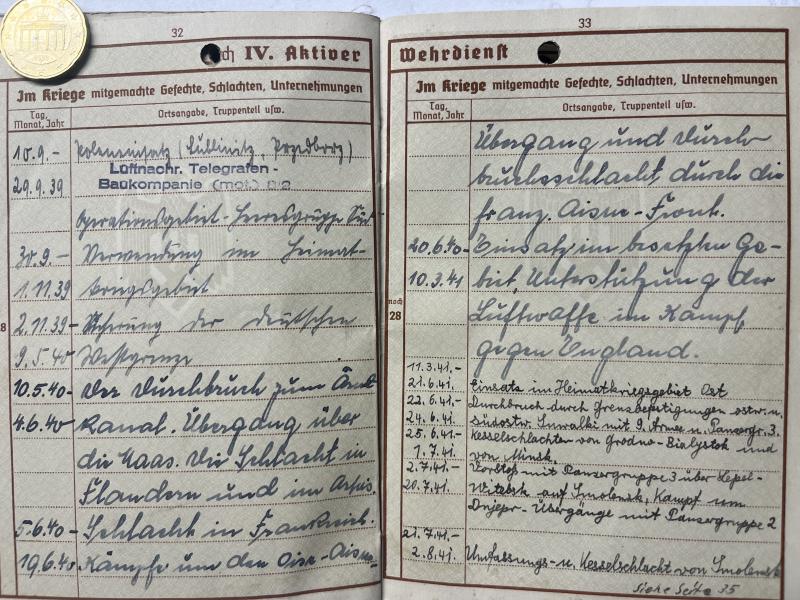 32
noch IV. Aktiver
Im Kriege mitgemachte Gefechte, Schlachten, Unternehmungen
Tag, Monat, Jahr
Ortsangabe, Truppenteil usw.
10.9.- Poleneinsatz (Lublinitz,
29.9.39 Luftnachr. Telegrafen-
Baukompanie (mot.)
Operationsgebiet-Heeresgruppe Süd
30.9.- Verwendung im Heimat-
1.11.39 kriegsgebiet
2.11.39- Sicherung der deutschen
9.5.40 Westgrenze
10.5.40- Der Durchbruch zum
4.6.40 kanal. Übergang über
die Maas. Die Schlacht in
Flandern und im Artois.
5.6.40- Schlacht in Frankreich.
19.6.40 Kämpfe um den Oise-Aisne-
33
Wehrdienst
Im Kriege mitgemachte Gefechte, Schlachten, Unternehmungen
Tag, Monat, Jahr
Ortsangabe, Truppenteil usw.
Übergang und Durch-
bruchsschlacht durch die
franz. Aisne-Front.
20.6.40- Einsatz im besetzten Ge-
10.3.41 biet, Unterstützung der
noch 28
Luftwaffe im Kampf
gegen England.
11.3.41.-
21.6.41. Einsatz im Heimatkriegsgebiet Ost
22.6.41.- Durchbruch durch Grenzbefestigungen ostw. u.
24.6.41. südostw. Suwalki mit 9. Armee u. Panzergr. 3.
25.6.41.- Kesselschlachten von Grodno-Bialystok und
1.7.41. von Minsk.
2.7.41.- Vorstoß mit Panzergruppe 3 über Lepel-
20.7.41. Witebsk auf Smolensk, Kampf um
Dnjepr-Übergänge mit Panzergruppe 2
21.7.41.-
2.8.41. Umfassungs- u. Kesselschlacht von Smolensk
Siehe Seite 35